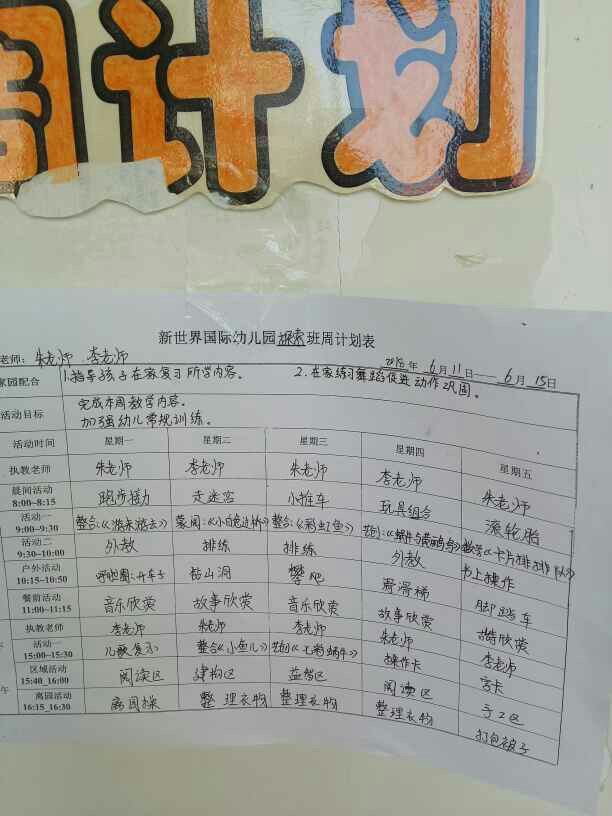 周计划
新世界国际幼儿园探索班周计划表
老师：朱老师 李老师 2018年 6月11日——6月15日
家园配合 1.指导孩子在家复习所学内容。 2.在家练习舞蹈促进动作巩固。
活动目标 完成本周教学内容。
加强幼儿常规训练。
活动时间 星期一 星期二 星期三 星期四 星期五
执教老师 朱老师 李老师 朱老师 李老师 朱老师
晨间活动 8:00~8:15 跑步接力 走迷宫 小推车 玩具组合 滚轮胎
活动一 9:00~9:30 整合:《游来游去》 《小白兔过桥》 整合:《彩虹鱼》 《蜗牛与黄鹂鸟》 《卡片排排队》
活动二 9:30~10:00 外教 排练 排练 外教 书上操作
户外活动 10:15~10:50 呼啦圈:开车子 钻山洞 攀爬 爬滑梯 脚踏车
餐前活动 11:00~11:15 音乐欣赏 故事欣赏 音乐欣赏 故事欣赏 欣赏
执教老师 李老师 朱老师 李老师 朱老师 李老师
午
活动一 15:00~15:30 儿歌复习 整合《小鱼儿》 《七彩蜗牛》 操作卡 字卡
区域活动 15:40_16:00 阅读区 建构区 益智区 阅读区 手工区
离园活动 16:15_16:30 离园操 整理衣物 整理衣物 整理衣物 打包被子